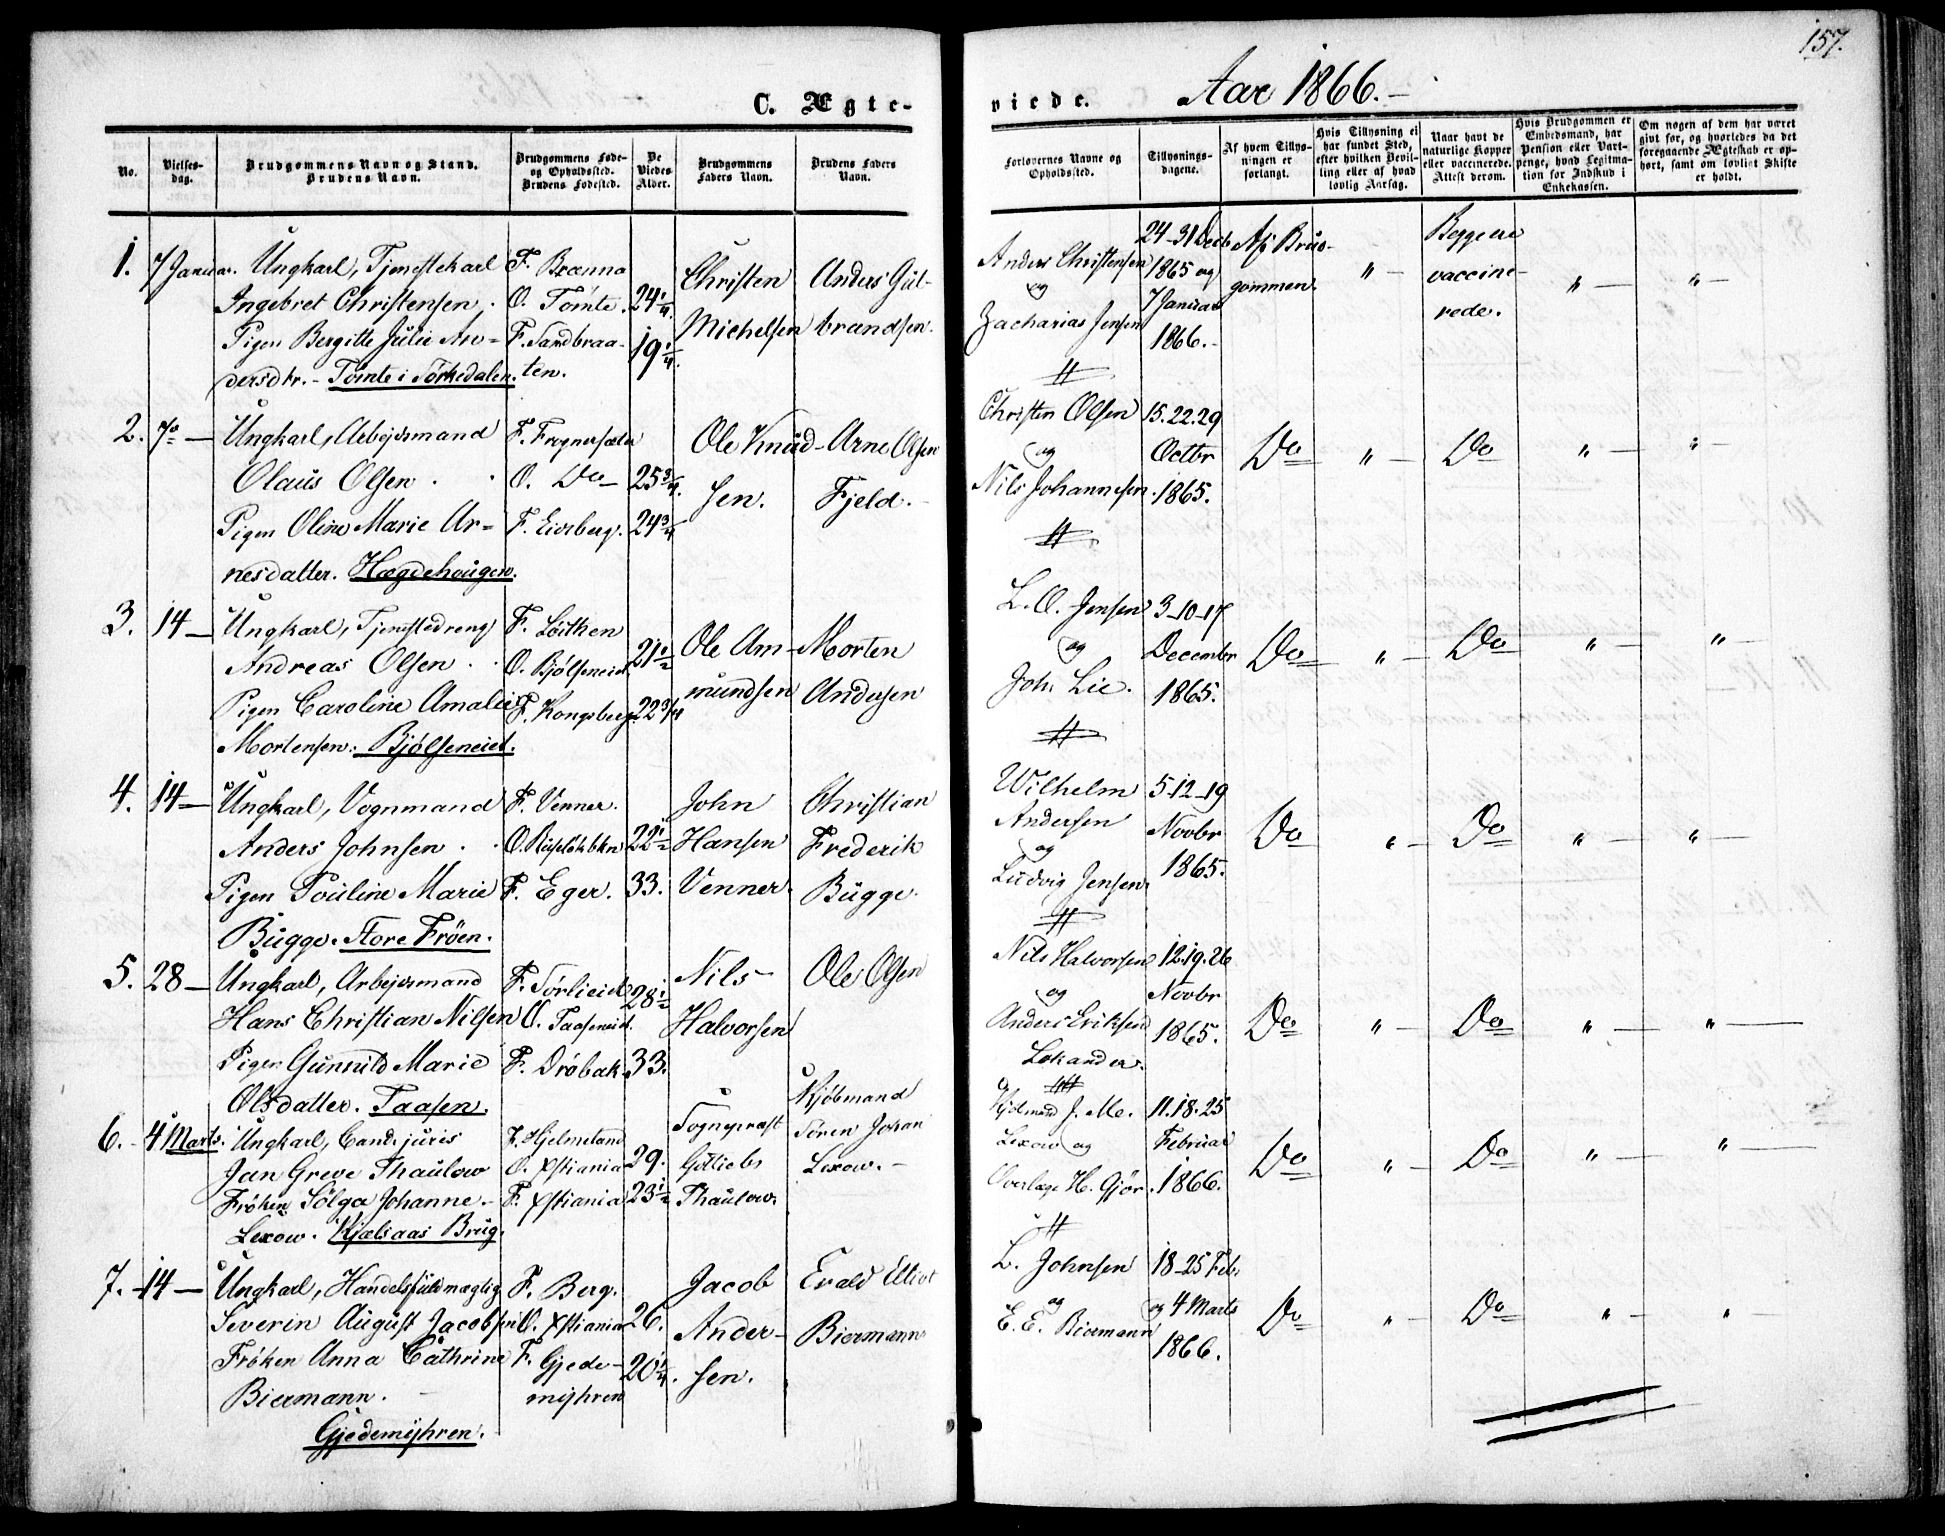 157.
C. Ægte-
viede.
Aar 1866.
No.
Vielses-
dag.
Brudgommens Navn og Stand.
Brudens Navn.
Brudgommens Føde-
og Opholdssted.
Brudens Fødested.
De
Viedes
Alder.
Brudgommens
Faders Navn.
Brudens Faders
Navn.
Forlovernes Navne og
Opholdssted.
Tillysnings-
dagene.
Af hvem Tillys-
ningen er
forlangt.
Hvis Tillysning ei
har fundet Sted,
efter hvilken Bevil-
ling eller af hvad
lovlig Aarsag.
Naar havt de
naturlige Kopper
eller vaccinerede.
Attest derom.
Hvis Brudgommen er
Embedsmand, har
Pension eller Vart-
penge, hvad Legitima-
tion for Indskud i
Enkekassen.
Om nogen af dem har været
givt før, og hvorledes da det
foregaaende Ægteskab er op-
hørt, samt om lovligt Skifte
er holdt.
1. 7 Januar. Ungkarl, Tjenestekarl
Ingebret Christensen.
Pigen Bergitte Julie An-
dersdtr. - Tømte i Sørkedalen.
F. Brenna
O. Tømte.
F. Sandbraa-
ten.
24 1/4.
19 1/4.
Christen
Michelsen
Anders Gul-
brandsen.
Anders Christensen
og
Zacharias Jensen
24-31 Decb
1865 og
7 Januar
1866.-
Af Brud-
gommen.
" -
Begge ere
vaccine-
rede.
" -
" -
2. 7de — Ungkarl, Arbejdsmand
Olaus Olsen.
Pigen Oline Marie Ar-
nesdatter. Hægdehaugen.
F. Frognersæter
O. Do
F. Eidsberg.
25 3/4.
24 3/4
Ole Knud-
sen.
Arne Olsen
Fjeld.
Christen Olsen
og
Nils Johannesen.
15.22.29
Octbr
1865.
Do
" -
Do
" -
" -
3. 14 — Ungkarl, Tjenestedreng
Andreas Olsen.
Pigen Caroline Amalie
Mortensen. Bjølseneiet.
F. Løithen
O. Bjølseneiet.
F. Kongsberg.
21 1/2
22 3/4
Ole Am-
mundsen
Morten
Andersen
L. O. Jensen
og
Joh. Lie.
3-10-17
Decembr
1865.
Do
" -
Do
" -
" -
4. 14 — Ungkarl, Vognmand
Anders Johnsen.
Pigen Pouline Marie
Bugge. Store Frøen.
F. Venner.
F. Eger.
22 1/2
33.
John
Hansen
Venner.
Christian
Frederik
Bugge.
Wilhelm
Andersen
og
Ludvig Jensen.
5-12-19
Novbr
1865.
Do
" -
Do
" -
" -
5. 28 — Ungkarl, Arbejdsmand
Hans Christian Nilsen
Pigen Gunnild Marie
Olsdatter. Taasen.
F. Sørlieid
O. Taaseneid.
F. Drøbak.
28 1/2
33.
Nils
Halvorsen
Ole Olsen
Nils Halvorsen
og
Anders Eriksen
Lokander.
12.19.26
Novbr
1865.
Do
" -
Do
" -
" -
6. 4 Marts. Ungkarl, Cand. juris
Jan Greve Thaulow
Frøken Sølga Johanne
Lexow. Kjælsaas Brug.
F. Hjelmeland
O. Xstiania
F. Xstiania
29.
23 1/2
Sognepræst
Gotlieb
Thaulow.
Kjøbmand
Søren Johan
Lexow. -
Kjøbmand J. Me.
Lexow og
Overlæge H. Gjør.
11.18.25
Februar
1866.
Do
" -
Do
" -
" -
7. 14 — Ungkarl, Handelsfuldmægtig
Severin August Jacobsen
Frøken Anna Cathrine
Biermann.
Gjedemyhren.
F. Berg.
O. Xstiania
F. Gjede-
myhren
26.
20 1/4.
Jacob
Ander-
sen.
Evald Elliot
Biermann
L. Johnsen
og
E. E. Biermann
18-25 Feb.
og 4 Marts
1866.
Do
" -
Do
" -
" -